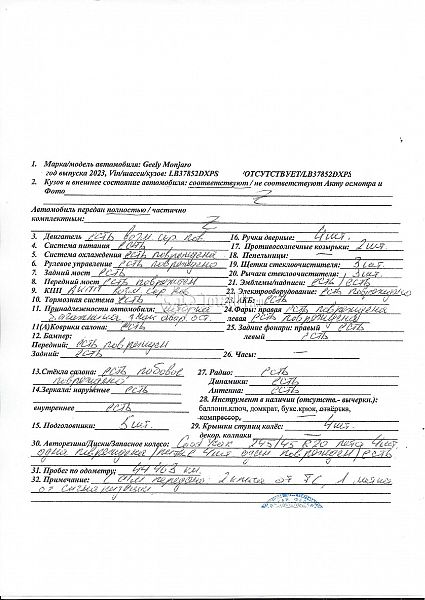 1. Марка/модель автомобиля: Geely Monjaro
год выпуска 2023, Vin/шасси/кузов: LB37852DXPS /ОТСУТСТВУЕТ/LB37852DXPS
2. Кузов и внешнее состояние автомобиля: соответствуют / не соответствуют Акту осмотра и
Фото
Автомобиль передан полностью / частично
комплектным:
3. Двигатель есть возм. скр. пов.
16. Ручки дверные: 4 шт.
4. Система питания есть
17. Противосолнечные козырьки: 2 шт.
5. Система охлаждения есть повреждена
18. Пепельницы: —
6. Рулевое управление есть повреждено
19. Щетки стеклоочистителя: 3 шт.
7. Задний мост есть
20. Рычаги стеклоочистителя: 3 шт.
8. Передний мост есть поврежден
21. Эмблемы/надписи: есть / есть
9. КПП АКПП возм. скр. пов.
22. Электрооборудование: есть повреждено
10. Тормозная система есть
23. АКБ: есть
11. Принадлежности автомобиля: шторка
24. Фары: правая есть повреждена
левая есть повреждена
11(А)Коврики салона: есть
25. Задние фонари: правый есть
12. Бампер:
левый есть
Передний: есть поврежден
Задний: есть
26. Часы: —
13. Стёкла салона: есть лобовое
повреждено
27. Радио: есть
Динамики: есть
Антенна: есть
14. Зеркала: наружные есть
28. Инструмент в наличии (отсутств.- вычеркн.):
баллон.ключ, домкрат, букс.крюк, аварёрка,
компрессор,
внутреннее есть
15. Подголовники: 5 шт.
29. Крышки ступиц колёс: 4 шт.
декор. колпаки —
30. Авторезина/Диски/Запасное колесо: 245/45 R20 лето 4 шт.
одна повреждена / литые 4 шт один поврежден / есть
31. Пробег по одометру: км.
32. Примечание: с а/м передано: 2 ключа от ТС, 1 метка
от сигнализации